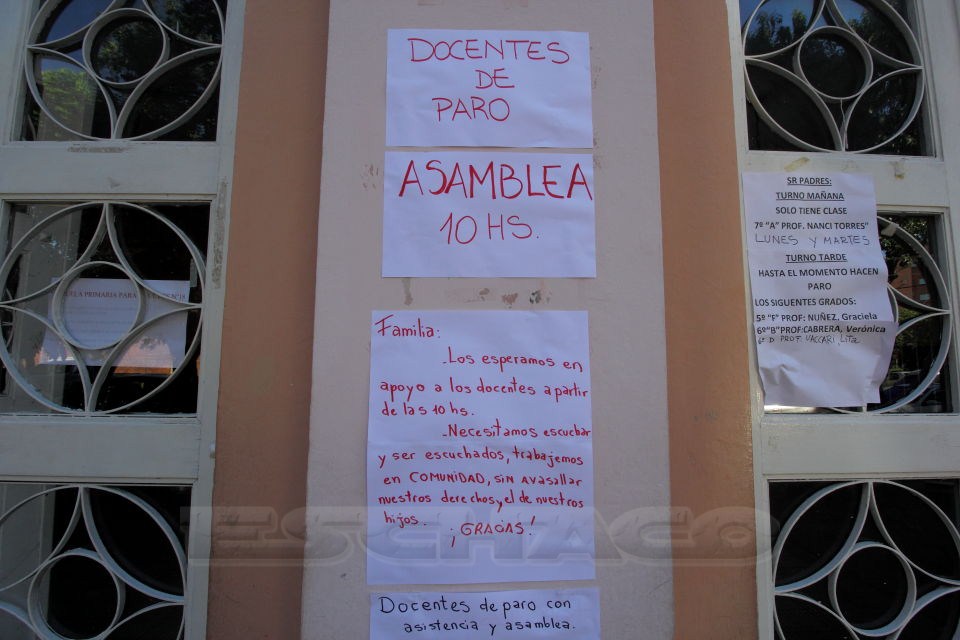 DOCENTES
DE
PARO
ASAMBLEA
10 HS.
Familia:
-Los esperamos en
apoyo a los docentes a partir
de las 10 hs.
-Necesitamos escuchar
y ser escuchados, trabajemos
en COMUNIDAD, SIN AVASALLAR
nuestros derechos y el de nuestros
hijos. ¡GRACIAS!
Docentes de paro con
asistencia y asamblea.
SR PADRES:
TURNO MAÑANA
SOLO TIENE CLASE
7º "A" PROF. NANCI TORRES"
LUNES Y MARTES
TURNO TARDE
HASTA EL MOMENTO HACEN
PARO
LOS SIGUENTES GRADOS:
5º "F" PROF: NUÑEZ, Graciela
6º"B"PROF:CABRERA, Verónica
6º D PROF. VACCARI, Lita
PRIMARIA PARA
ESCHACO